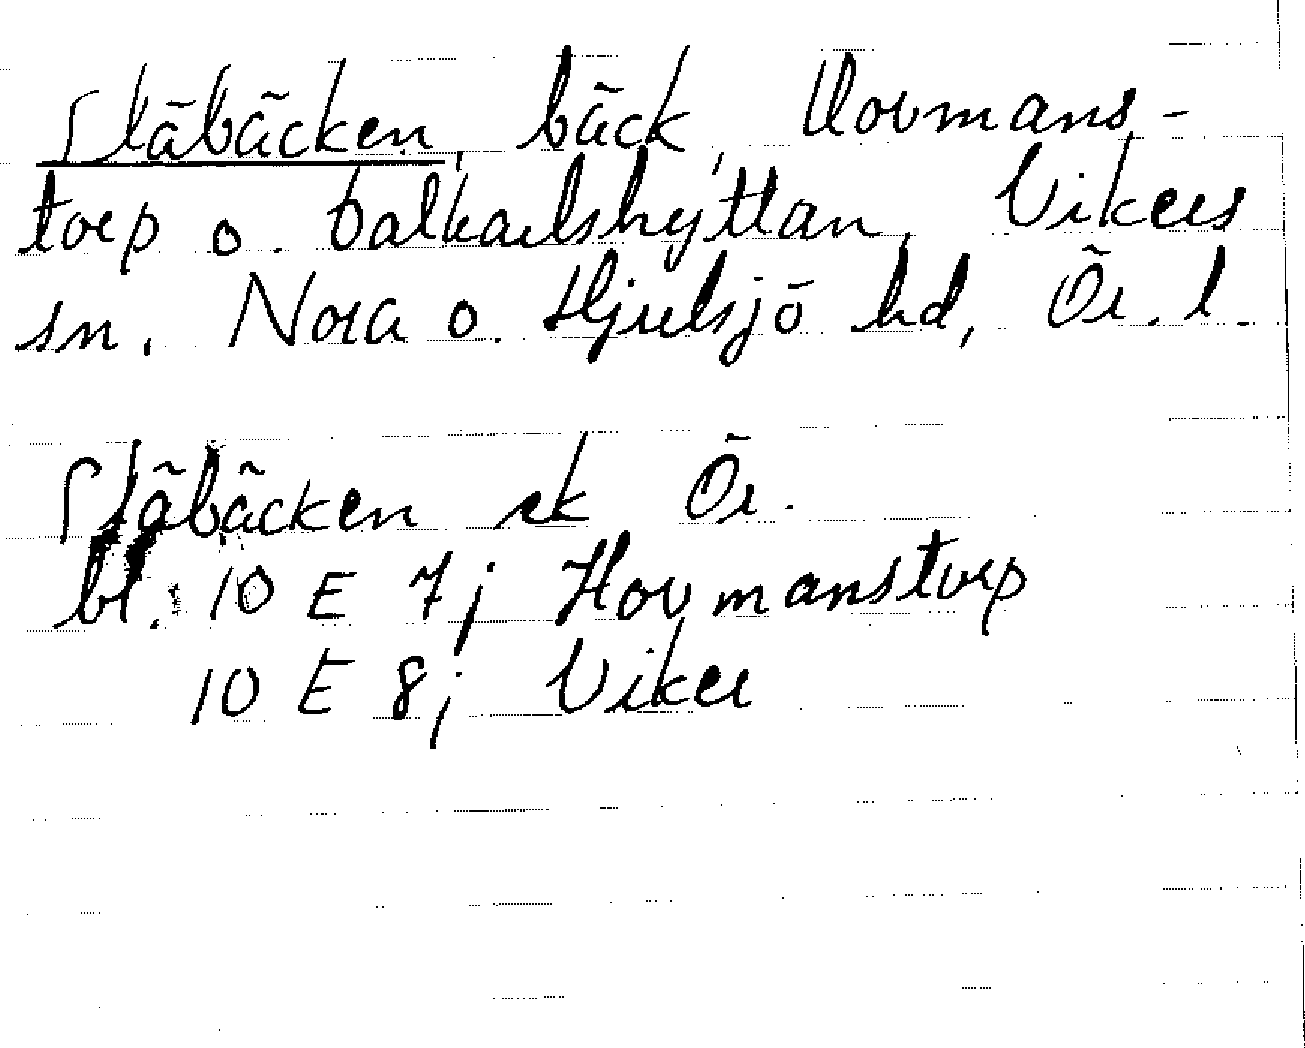 Släbäcken, bäck, Hovmans-
torp o. Dalkarlshyttan, Vikers
sn, Nora o. Hjulsjö hd, Ör. l.
Släbäcken ek Ör.
bl. 10 E 7j Hovmanstorp
10 E 8j Viker